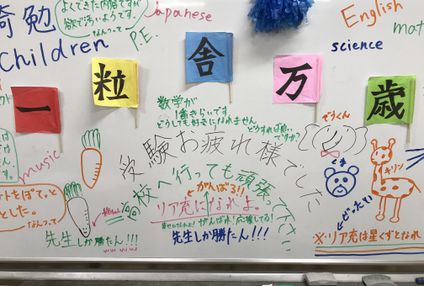 よくできた内容ですが
欲を言いようです。
なんつって
Japanese
English
math
勉
Children
P.E.
science
一
粒
舎
万
歳
数学が
1番きらいです
どうしても好きになれません
どうすれば良い
ですか?
ぞうくん
music
受験お疲れ様でした
キリン
校へ行っても頑張って
がんばる!!
リア充になれよ。
がんばれ!応援してる!
先生しか勝たん!!!
先生しか勝たん!!!
とした。
なんつって
※リア充は星くずとなれ